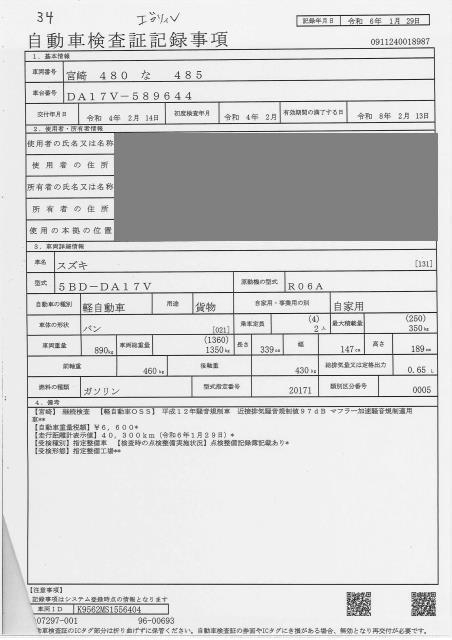 34
エブリィV
記録年月日 令和 6年 1月 29日
自動車検査証記録事項
0911240018987
1. 基本情報
車両番号 宮崎 480 な 485
車台番号 DA17V-589644
交付年月日 令和 4年 2月 14日 初度検査年月 令和 4年 2月 有効期間の満了する日 令和 8年 2月 13日
2. 使用者・所有者情報
使用者の氏名又は名称
使用者の住所
所有者の氏名又は名称
所有者の住所
使用の本拠の位置
3. 車両詳細情報
車名 スズキ [131]
型式 5BD-DA17V 原動機の型式 R06A
自動車の種別 軽自動車 用途 貨物 自家用・事業用の別 自家用
車体の形状 バン [021] 乗車定員 (4) 2人 最大積載量 (250) 350kg
車両重量 890kg 車両総重量 (1360) 1350kg 長さ 339cm 幅 147cm 高さ 189cm
前軸重 460kg 後軸重 430kg 総排気量又は定格出力 0.65 L
燃料の種類 ガソリン 型式指定番号 20171 類別区分番号 0005
4. 備考
【宮崎】 継続検査 【軽自動車OSS】 平成12年騒音規制車 近接排気騒音規制値97dB マフラー加速騒音規制適用
車**
【自動車重量税額】¥6,600*
【走行距離計表示値】40,300km(令和6年1月29日)*
【受検種別】指定整備車 【検査時の点検整備実施状況】点検整備記録簿記載あり*
【受検形態】指定整備工場**
【注意事項】
記録事項はシステム登録時点の情報となります
車両ID K9562MS1556404
07297-001 96-00693
動車検査証のICタグ部分は折り曲げずに保管ください。自動車検査証の券面やICタグにき損がある場合、無効となり再交付が必要です。